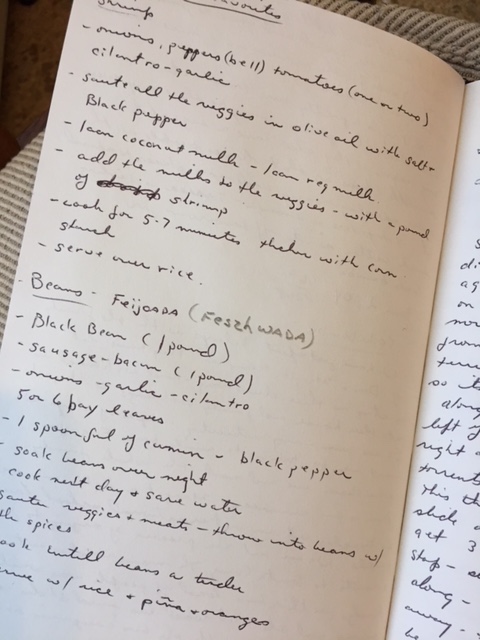 Favorites
shrimp
- onions, peppers (bell) tomatoes (one or two)
cilantro - garlic
- saute all the veggies in olive oil with salt +
Black pepper
- 1 can coconut milk - 1 can reg milk
- add the milks to the veggies - with a pound
of shrimp
- cook for 5-7 minutes with corn
starch
- serve over rice.
- Beans - FEIJOADA (FESZHWADA)
- Black Bean (1 pound)
- sausage - bacon (1 pound)
- onions - garlic - cilantro
5 or 6 bay leaves
- 1 spoonful of cumin - black pepper
- soak beans over night
cook next day + save water
saute veggies + meats - throw into beans w/
the spices
cook untill beans a tender
serve w/ rice + piña + oranges
on
left of
right
This th
get 3
along -
away -
be